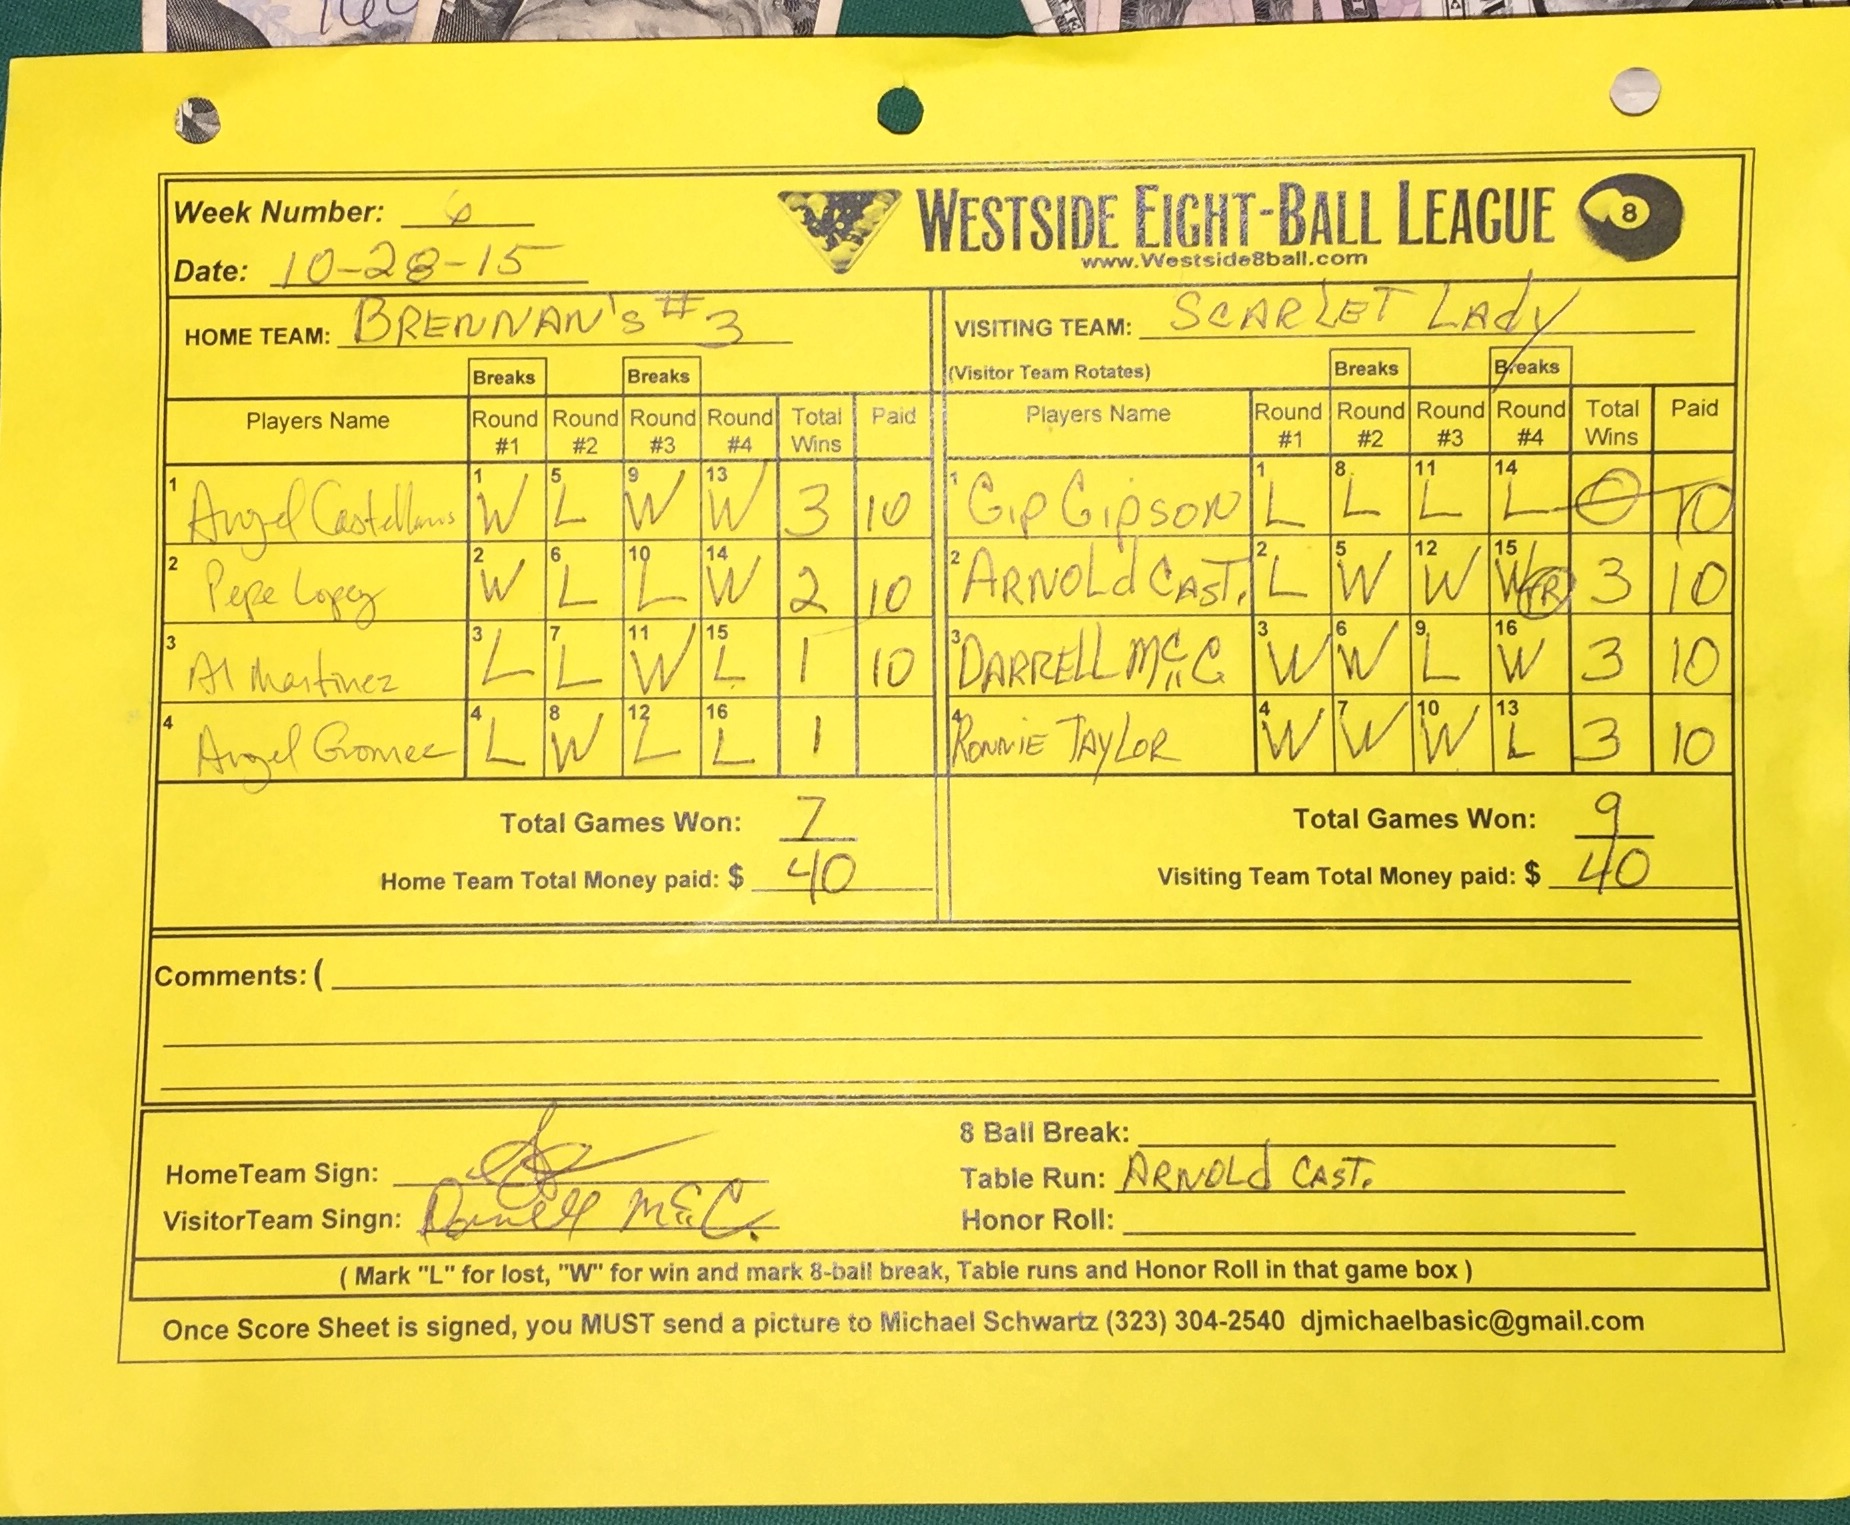 Week Number: 6
WESTSIDE EIGHT-BALL LEAGUE 8
www.Westside8ball.com
Date: 10-28-15
HOME TEAM: BRENNAN'S #3 VISITING TEAM: SCARLET LADY
Breaks Breaks (Visitor Team Rotates) Breaks Breaks
Players Name Round #1 Round #2 Round #3 Round #4 Total Wins Paid Players Name Round #1 Round #2 Round #3 Round #4 Total Wins Paid
1 Angel Castellanos 1 W 5 L 9 W 13 W 3 10 1 GIP GIPSON 1 L 8 L 11 L 14 L 0 10
2 Pepe Lopez 2 W 6 L 10 L 14 W 2 10 2 ARNOLD CAST. 2 L 5 W 12 W 15 W TR 3 10
3 Al Martinez 3 L 7 L 11 W 15 L 1 10 3 DARRELL McC 3 W 6 W 9 L 16 W 3 10
4 Angel Gomez 4 L 8 W 12 L 16 L 1 4 RONNIE TAYLOR 4 W 7 W 10 W 13 L 3 10
Total Games Won: 7 Total Games Won: 9
Home Team Total Money paid: $ 40 Visiting Team Total Money paid: $ 40
Comments: (
8 Ball Break:
HomeTeam Sign: Table Run: ARNOLD CAST.
VisitorTeam Singn: Darrell McC. Honor Roll:
( Mark "L" for lost, "W" for win and mark 8-ball break, Table runs and Honor Roll in that game box )
Once Score Sheet is signed, you MUST send a picture to Michael Schwartz (323) 304-2540 djmichaelbasic@gmail.com